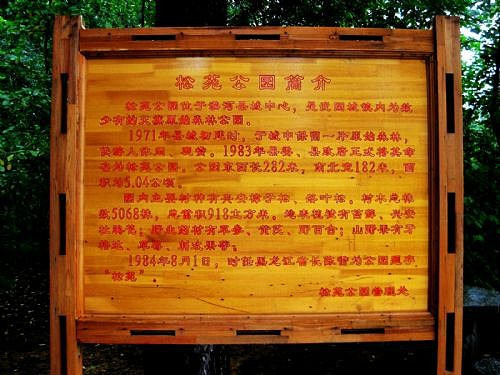 松苑公园简介
松苑公园位于漠河县城中心，是我国城镇内为数
少有的天然原始森林公园。
1971年县城初建时，于城中保留一片原始森林，
供游人休闲、观赏。1983年县委、县政府正式将其命
名为松苑公园。公园东西长282米，南北宽182米，面
积为5.04公顷。
园内主要树种有兴安樟子松、落叶松。树木总株
数5068株，总蓄积918立方米。地表植被有苔藓、兴安
杜鹃花；野生药材有平参、黄芪、野百合；山野果有牙
格达、草莓、刺玫果等。
1984年8月1日，时任黑龙江省省长陈雷为公园题字
“松苑”
松苑公园管理处